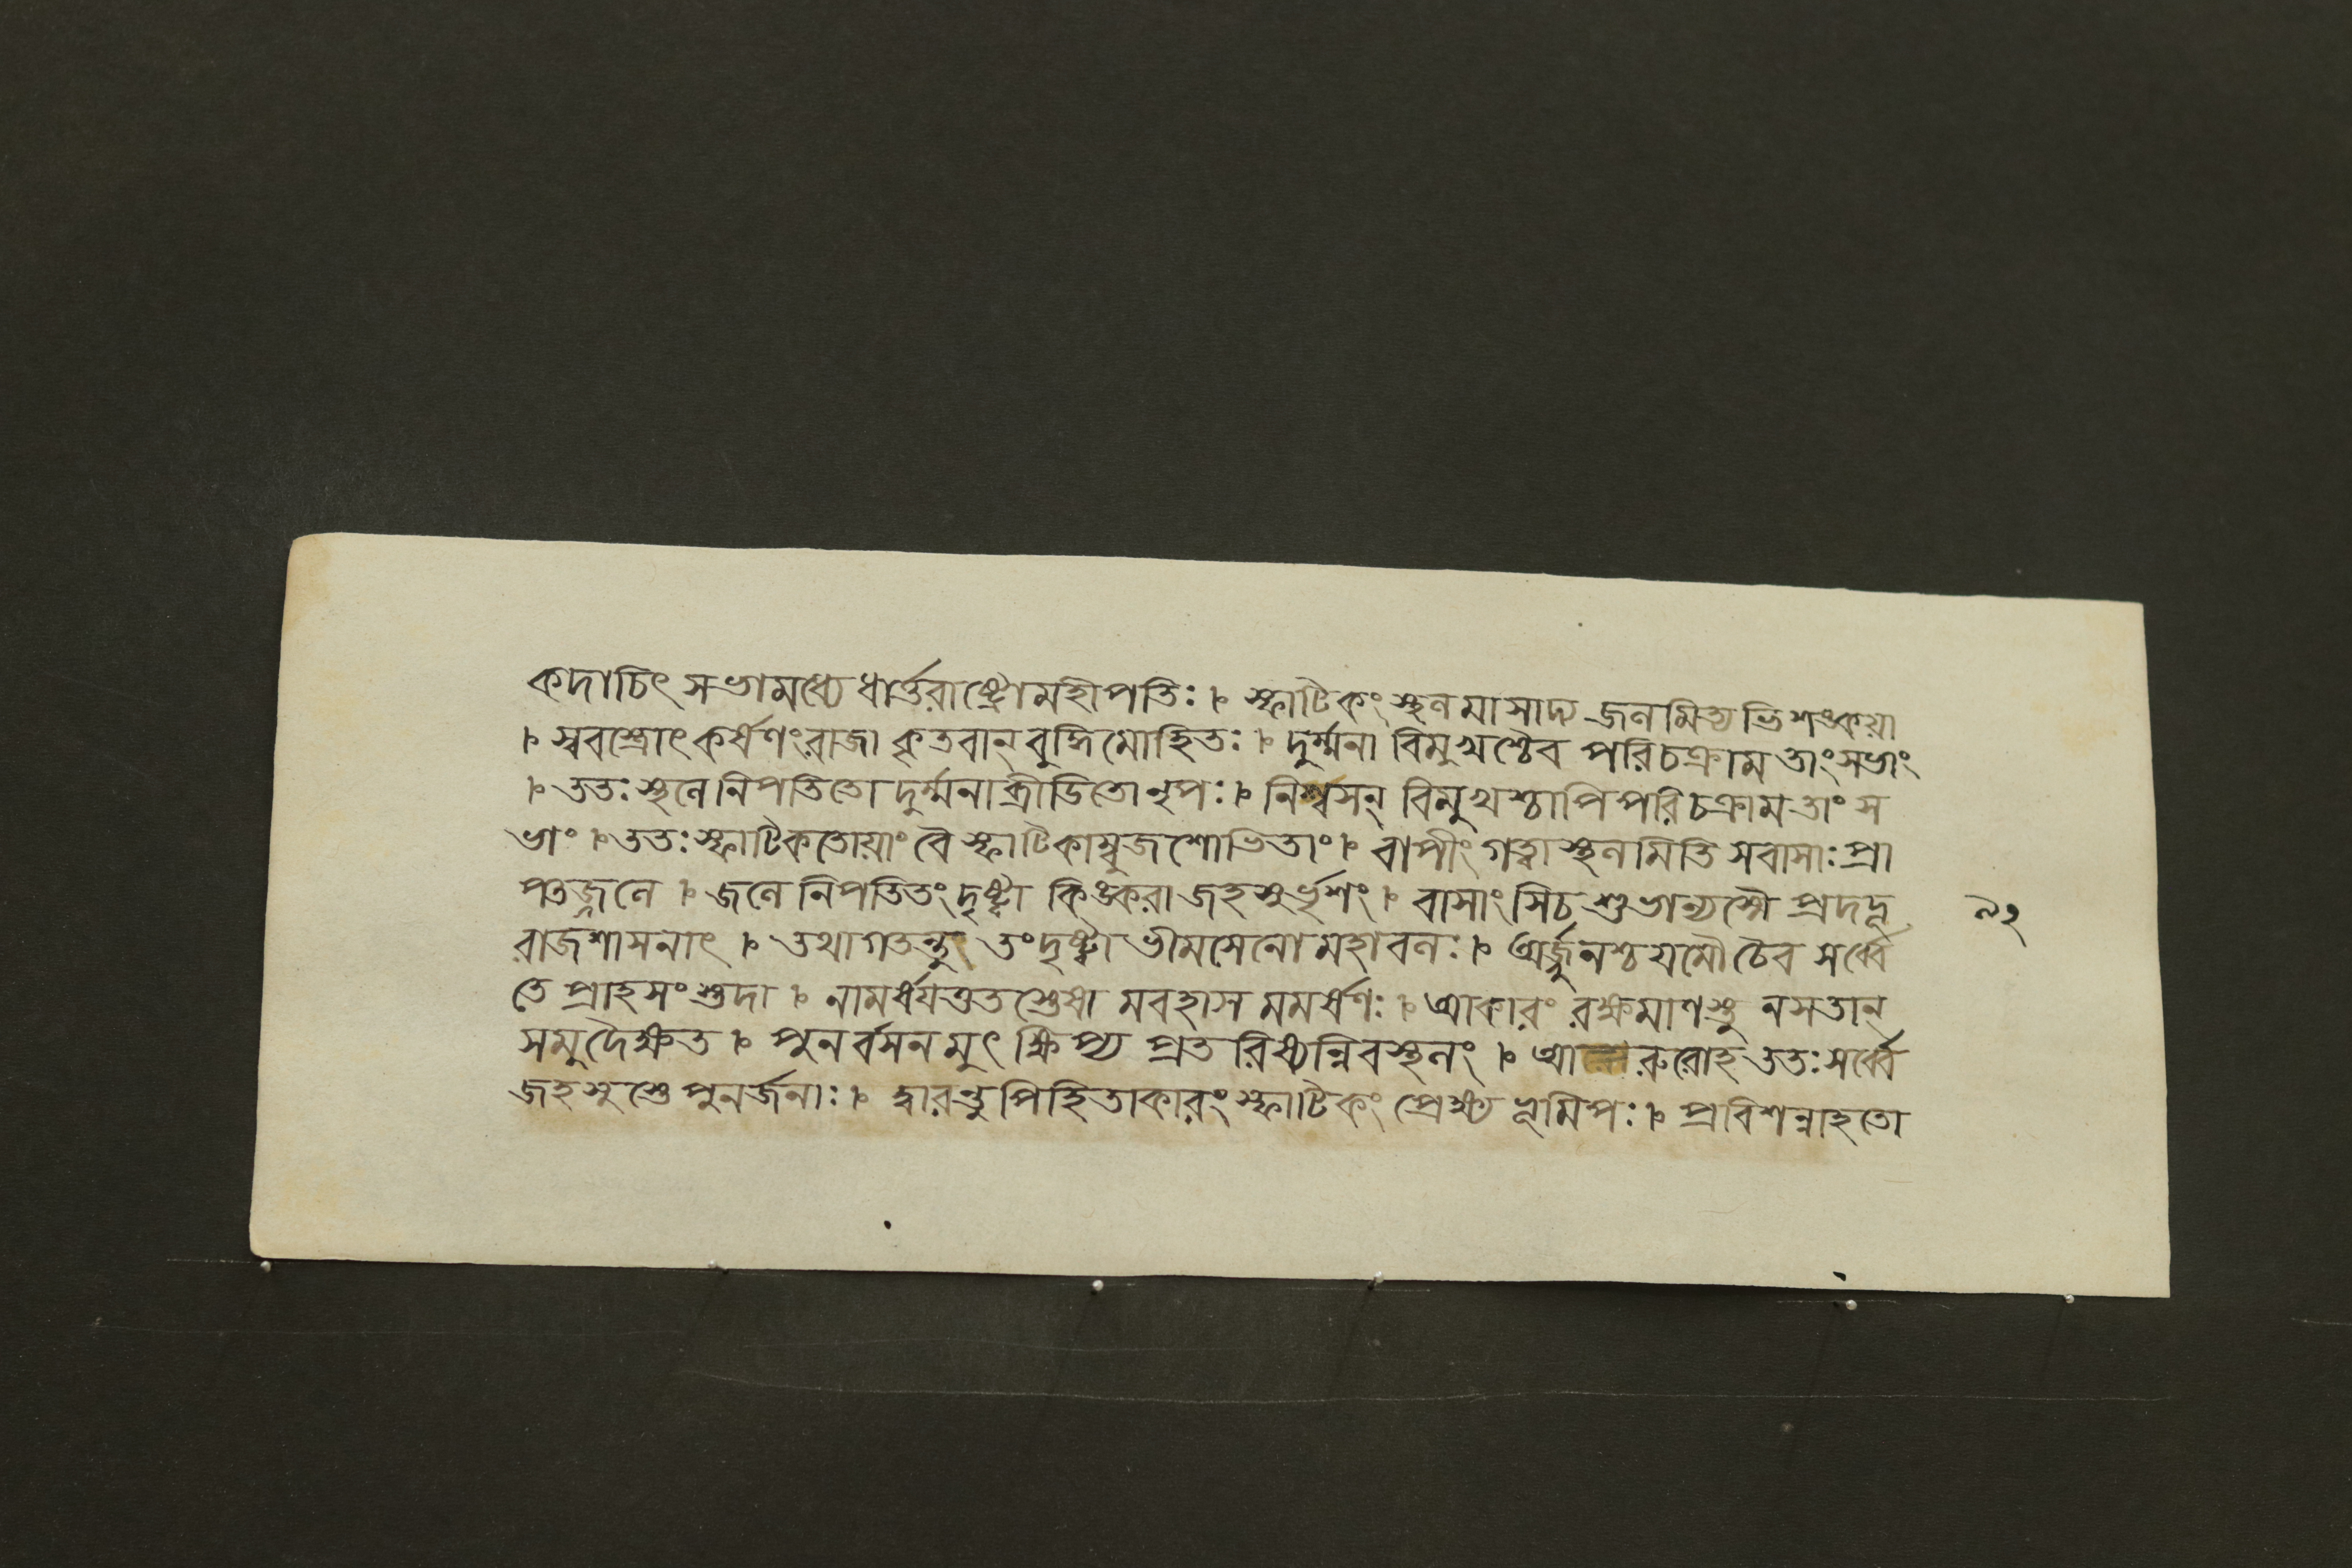 কদাচিৎ সভামধ্যে ধার্ত্তরাষ্ট্রোমহীপতিঃ। স্ফাটিকং স্থলমাসাদ্য জলমিত্যভিশঙ্কয়া
। স্ববস্ত্রোৎকর্ষণংরাজা কৃতবান্ বুদ্ধিমোহিতঃ। দুর্ম্মনা বিমুখশ্চৈব পরিচক্রাম তাংসভাং
। ততঃ স্থলে নিপতিতো দুর্ম্মনাব্রীডিতোনৃপঃ। নিশ্বসন্ বিমুখশ্চাপি পরিচক্রাম তাং স
ভাং। ততঃ স্ফাটিকতোয়াং বৈ স্ফাটিকাম্বুজশোভিতাং। বাপীং গত্বা স্থলমিতি সবাসাঃ প্রা
পতজ্জলে। জলে নিপতিতং দৃষ্ট্বা কিঙ্করা জহসুর্ভৃশং। বাসাংসিচ শুভান্যস্মৈ প্রদদূ
৯২
রাজশাসনাৎ। তথাগতন্তু তংদৃষ্ট্বা ভীমসেনো মহাবলঃ। অর্জ্জুনশ্চ যমৌ চৈব সর্ব্বে
তে প্রাহসংস্তুদা। নামর্ষযত্তত স্তেষা মবহাস মমর্ষণঃ। আকারং রক্ষমাণস্তু নসতান্
সমুদৈক্ষত। পুনর্বসনমুৎক্ষিপ্য প্রতরিষ্যন্নিবস্থলং। আরুরোহ ততঃ সর্ব্বে
জহসুস্তে পুনর্জনাঃ। দ্বারন্তু পিহিতাকারং স্ফাটিকং প্রেক্ষ্য ভূমিপঃ। প্রবিশন্নাহতো